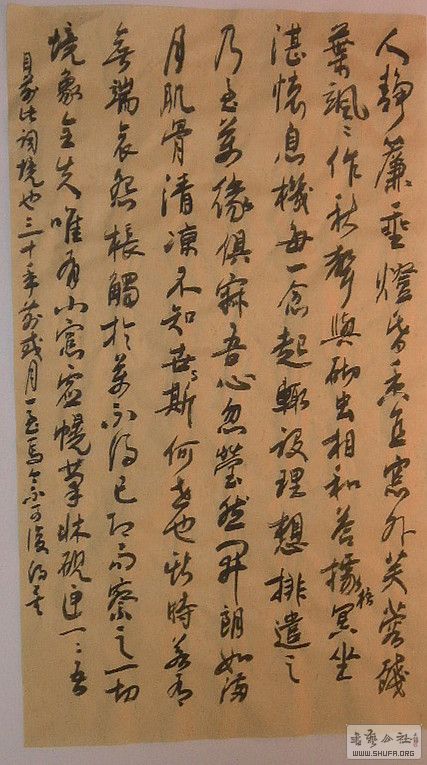 人静簾垂燈昏香直窓外芙蓉殘
葉颯〻作秋聲與砌虫相和答據梧冥坐
湛懷息機每一念起輒設理想排遣之
乃至萬緣俱寂吾心忽瑩然開朗如滿
月肌骨清凉不知斯世何世也斯時若有
無端哀怨棖觸於萬不得已即而察之一切
境象全失唯有小窓虚幌筆牀硯匣一〻在吾
目前此詞境也三十年前或月一至焉今不可復得矣
書藝公社
WWW.SHUFA.ORG